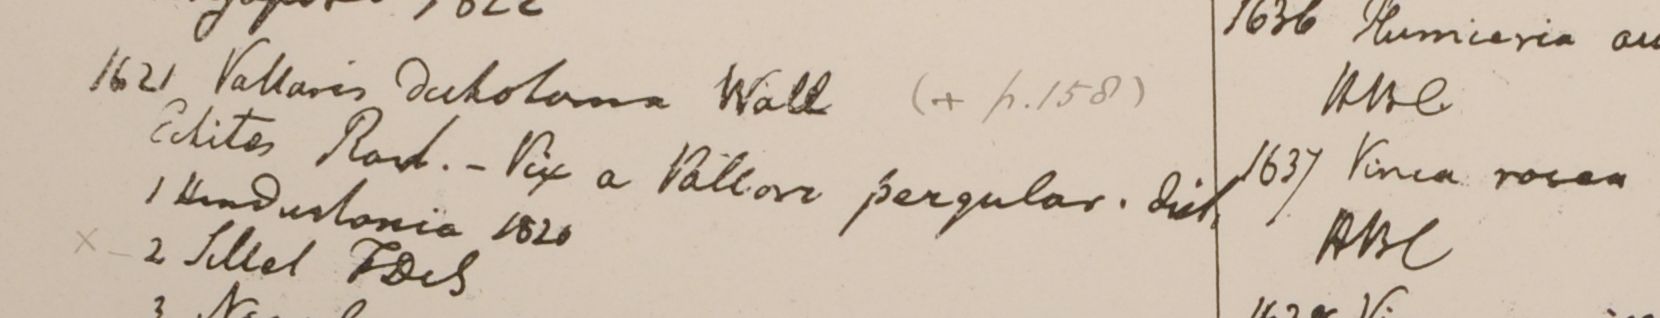 1822
1621 Vallaris dichotoma Wall (+ p. 158)
Echites Roxb. - Vix a Vallari pergular. dist.
1 Hindustania 1820
X - 2 Sillet FDeS
3
1636 Plumieria
HBC
1637 Vinca rosea
HBC